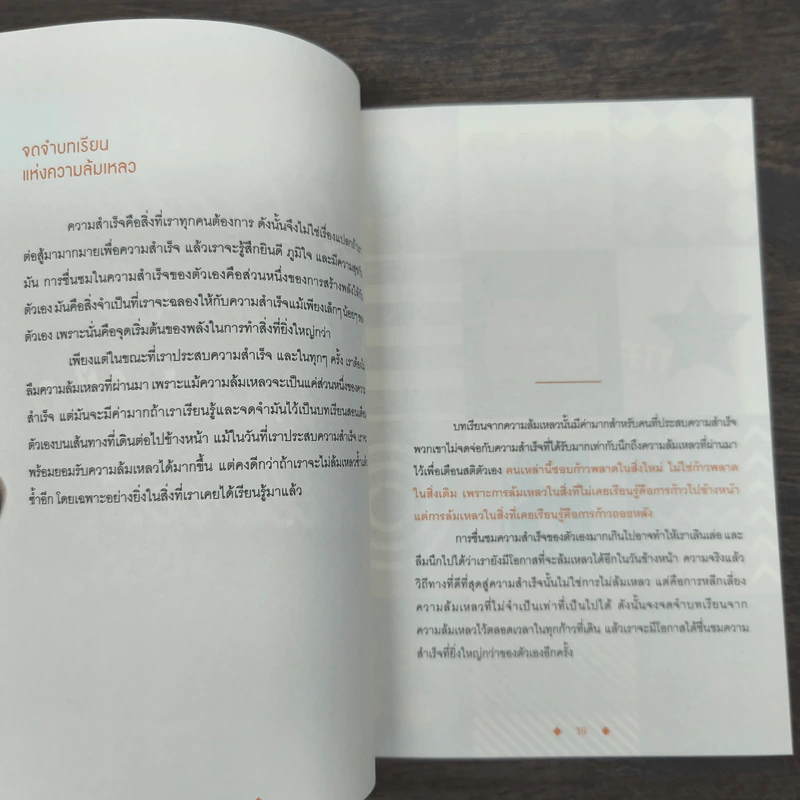 จดจำบทเรียน
แห่งความล้มเหลว
ความสำเร็จคือสิ่งที่เราทุกคนต้องการ ดังนั้นจึงไม่ใช่เรื่อง
ต่อสู้มามากมายเพื่อความสำเร็จ แล้วเราจะรู้สึกยินดี ภูมิใจ และมี
มัน การชื่นชมในความสำเร็จของตัวเองคือส่วนหนึ่งของการสร้าง
ตัวเอง มันคือสิ่งจำเป็นที่เราจะฉลองให้กับความสำเร็จแม้เพียงเล็กๆ น้อยๆ
ตัวเอง เพราะนั่นคือจุดเริ่มต้นของพลังในการทำสิ่งที่ยิ่งใหญ่กว่า
เพียงแต่ในขณะที่เราประสบความสำเร็จ และในทุกๆ ครั้ง
ลืมความล้มเหลวที่ผ่านมา เพราะแม้ความล้มเหลวจะเป็นแค่ส่วนหนึ่งของ
สำเร็จ แต่มันจะมีค่ามากถ้าเราเรียนรู้และจดจำมันไว้เป็นบทเรียน
ตัวเองบนเส้นทางที่เดินต่อไปข้างหน้า แม้ในวันที่เราประสบความสำเร็จ
พร้อมยอมรับความล้มเหลวได้มากขึ้น แต่คงดีกว่าถ้าเราจะไม่ล้มเหลว
ซ้ำอีก โดยเฉพาะอย่างยิ่งในสิ่งที่เราเคยได้เรียนรู้มาแล้ว
บทเรียนจากความล้มเหลวนั้นมีค่ามากสำหรับคนที่ประสบความสำเร็จ
พวกเขาไม่จดจ่อกับความสำเร็จที่ได้รับมากเท่ากับนึกถึงความล้มเหลวที่ผ่านมา
ไว้เพื่อเตือนสติตัวเอง คนเหล่านี้ชอบก้าวพลาดในสิ่งใหม่ ไม่ใช่ก้าวพลาด
ในสิ่งเดิม เพราะการล้มเหลวในสิ่งที่ไม่เคยเรียนรู้คือการก้าวไปข้างหน้า
แต่การล้มเหลวในสิ่งที่เคยเรียนรู้คือการก้าวถอยหลัง
การชื่นชมความสำเร็จของตัวเองมากเกินไปอาจทำให้เราเลินเล่อ และ
ลืมนึกไปได้ว่าเรายังมีโอกาสที่จะล้มเหลวได้อีกในวันข้างหน้า ความจริงแล้ว
วิถีทางที่ดีที่สุดสู่ความสำเร็จนั้นไม่ใช่การไม่ล้มเหลว แต่คือการหลีกเลี่ยง
ความล้มเหลวที่ไม่จำเป็นเท่าที่เป็นไปได้ ดังนั้นจงจดจำบทเรียนจาก
ความล้มเหลวไว้ตลอดเวลาในทุกก้าวที่เดิน แล้วเราจะมีโอกาสได้ชื่นชมความ
สำเร็จที่ยิ่งใหญ่กว่าของตัวเองอีกครั้ง
39